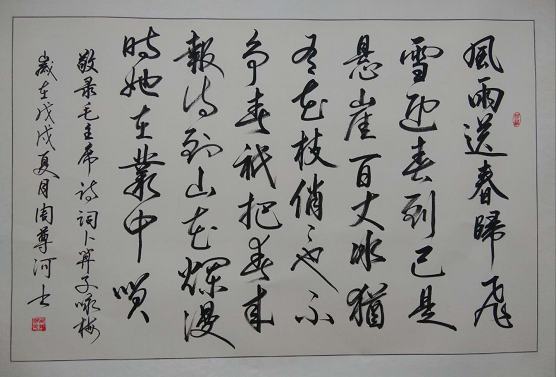 風雨送春歸飛
雪迎春到已是
悬崖百丈冰猶
有花枝俏〻也不
争春祇把春来
報待到山花爛漫
時她在叢中咲
敬录毛主席诗词卜算子咏梅
歲在戊戌夏月周尊河